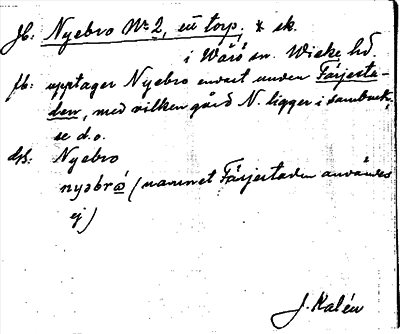 Jb: Nyebro No 2, ett torp, * sk.
i Wärö sn. Wiske hd
fb: upptager Nyebro envist under Färjesta-
den, med vilken gård N. ligger i sambruk,
se d.o.
ds: Nyebro
nyəbrώ (namnet Färjestaden användes
ej)
J. Kalén